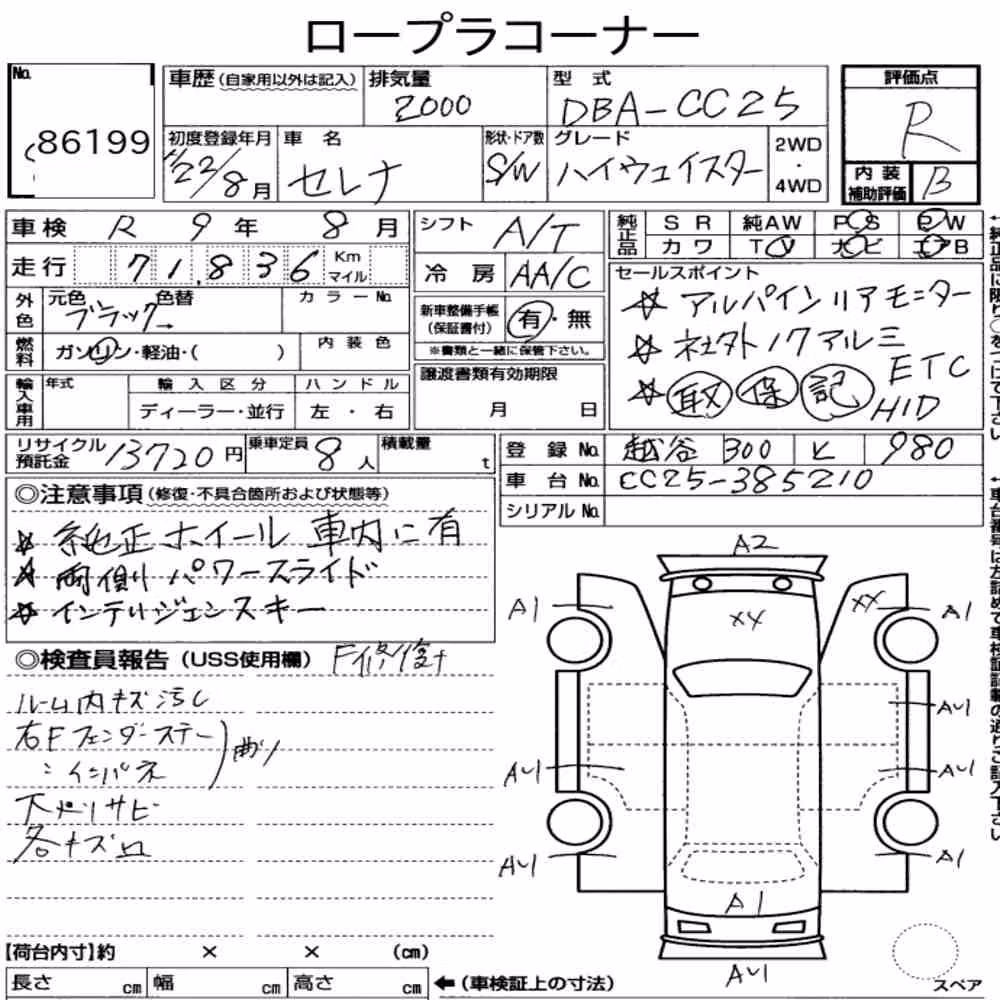 ロープラコーナー
No. 86199
車歴 (自家用以外は記入)
排気量 2000
型式 DBA-CC25
評価点 R
初度登録年月 H22/8月
車名 セレナ
形状・ドア数 S/W
グレード ハイウェイスター
2WD・4WD
内装補助評価 B
車検 R 9年 8月
シフト A/T
純正品 SR 純AW PS PW
カワ TV ナビ エアB
走行 71,836 Km マイル
冷房 AA/C
セールスポイント
☆ アルパインリアモニター
☆ 社外17アルミ
ETC
☆ 取 保 記 HID
外色 元色 ブラック 色替 カラーNo.
新車整備手帳 (保証書付) 有・無
※書類と一緒に保管下さい。
燃料 ガソリン・軽油・( )
内装色
輸入車用 年式 輸入区分 ハンドル
ディーラー・並行 左・右
譲渡書類有効期限
月 日
リサイクル預託金 13720円
乗車定員 8人
積載量 t
登録No. 越谷 300 と 980
車台No. CC25-385210
シリアルNo.
◎注意事項 (修復・不具合箇所および状態等)
☆ 純正ホイール 車内に有
☆ 両側パワースライド
☆ インテリジェンスキー
◎検査員報告 (USS使用欄) F修復
ルーム内キズ汚レ
右Fフェンダーステー
〃 インパネ
曲り
下廻りサビ
各キズ凹
A2
A1
XX
XX
A1
AU1
AU1
AU1
AU1
A1
A1
AU1
スペア
【荷台内寸】約 × × (cm)
長さ cm 幅 cm 高さ cm ←(車検証上の寸法)
←純正品に限り○をつけて下さい
←車台番号は左詰めで車検証記載の通りご記入下さい